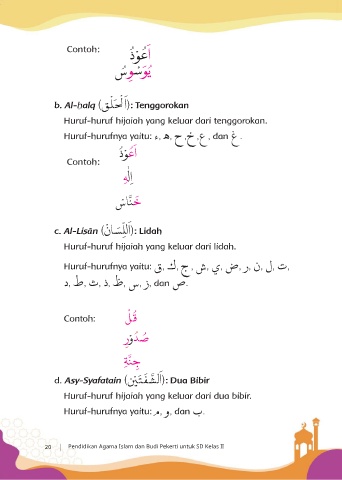 Contoh:
أَعُوْذُ
يُوَسْوِسُ
b. Al-ḥalq (اَلْحَلْقِ): Tenggorokan
Huruf-huruf hijaiah yang keluar dari tenggorokan.
Huruf-hurufnya yaitu: ء, ه, ح, خ, ع, dan غ.
Contoh:
أَعُوْذُ
إِلٰهِ
خَنَّاسِ
c. Al-Lisān (اَللِّسَانُ): Lidah
Huruf-huruf hijaiah yang keluar dari lidah.
Huruf-hurufnya yaitu: ق, ك, ج, ش, ي, ض, ر, ن, ل, ت,
د, ط, ث, ذ, ظ, س, ز, dan ص.
Contoh:
قُلْ
صُدُوْرِ
جِنَّةِ
d. Asy-Syafatain (اَلشَّفَتَيْنِ): Dua Bibir
Huruf-huruf hijaiah yang keluar dari dua bibir.
Huruf-hurufnya yaitu: م, و, dan ب.
20 | Pendidikan Agama Islam dan Budi Pekerti untuk SD Kelas II